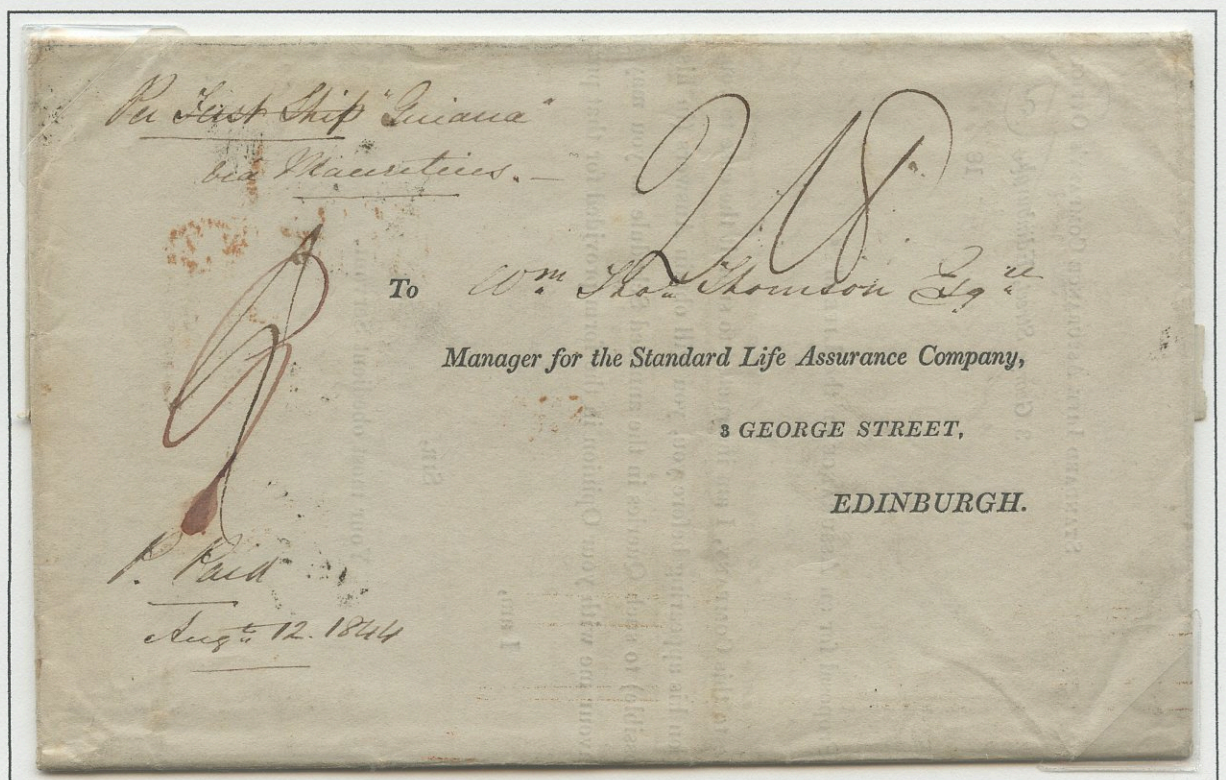 Per Fast Ship "Guiana"
via Mauritius. —
2/8
To Wm Thos Thomson Esqre
Manager for the Standard Life Assurance Company,
3 GEORGE STREET,
EDINBURGH.
P. Paid
Augt 12. 1844